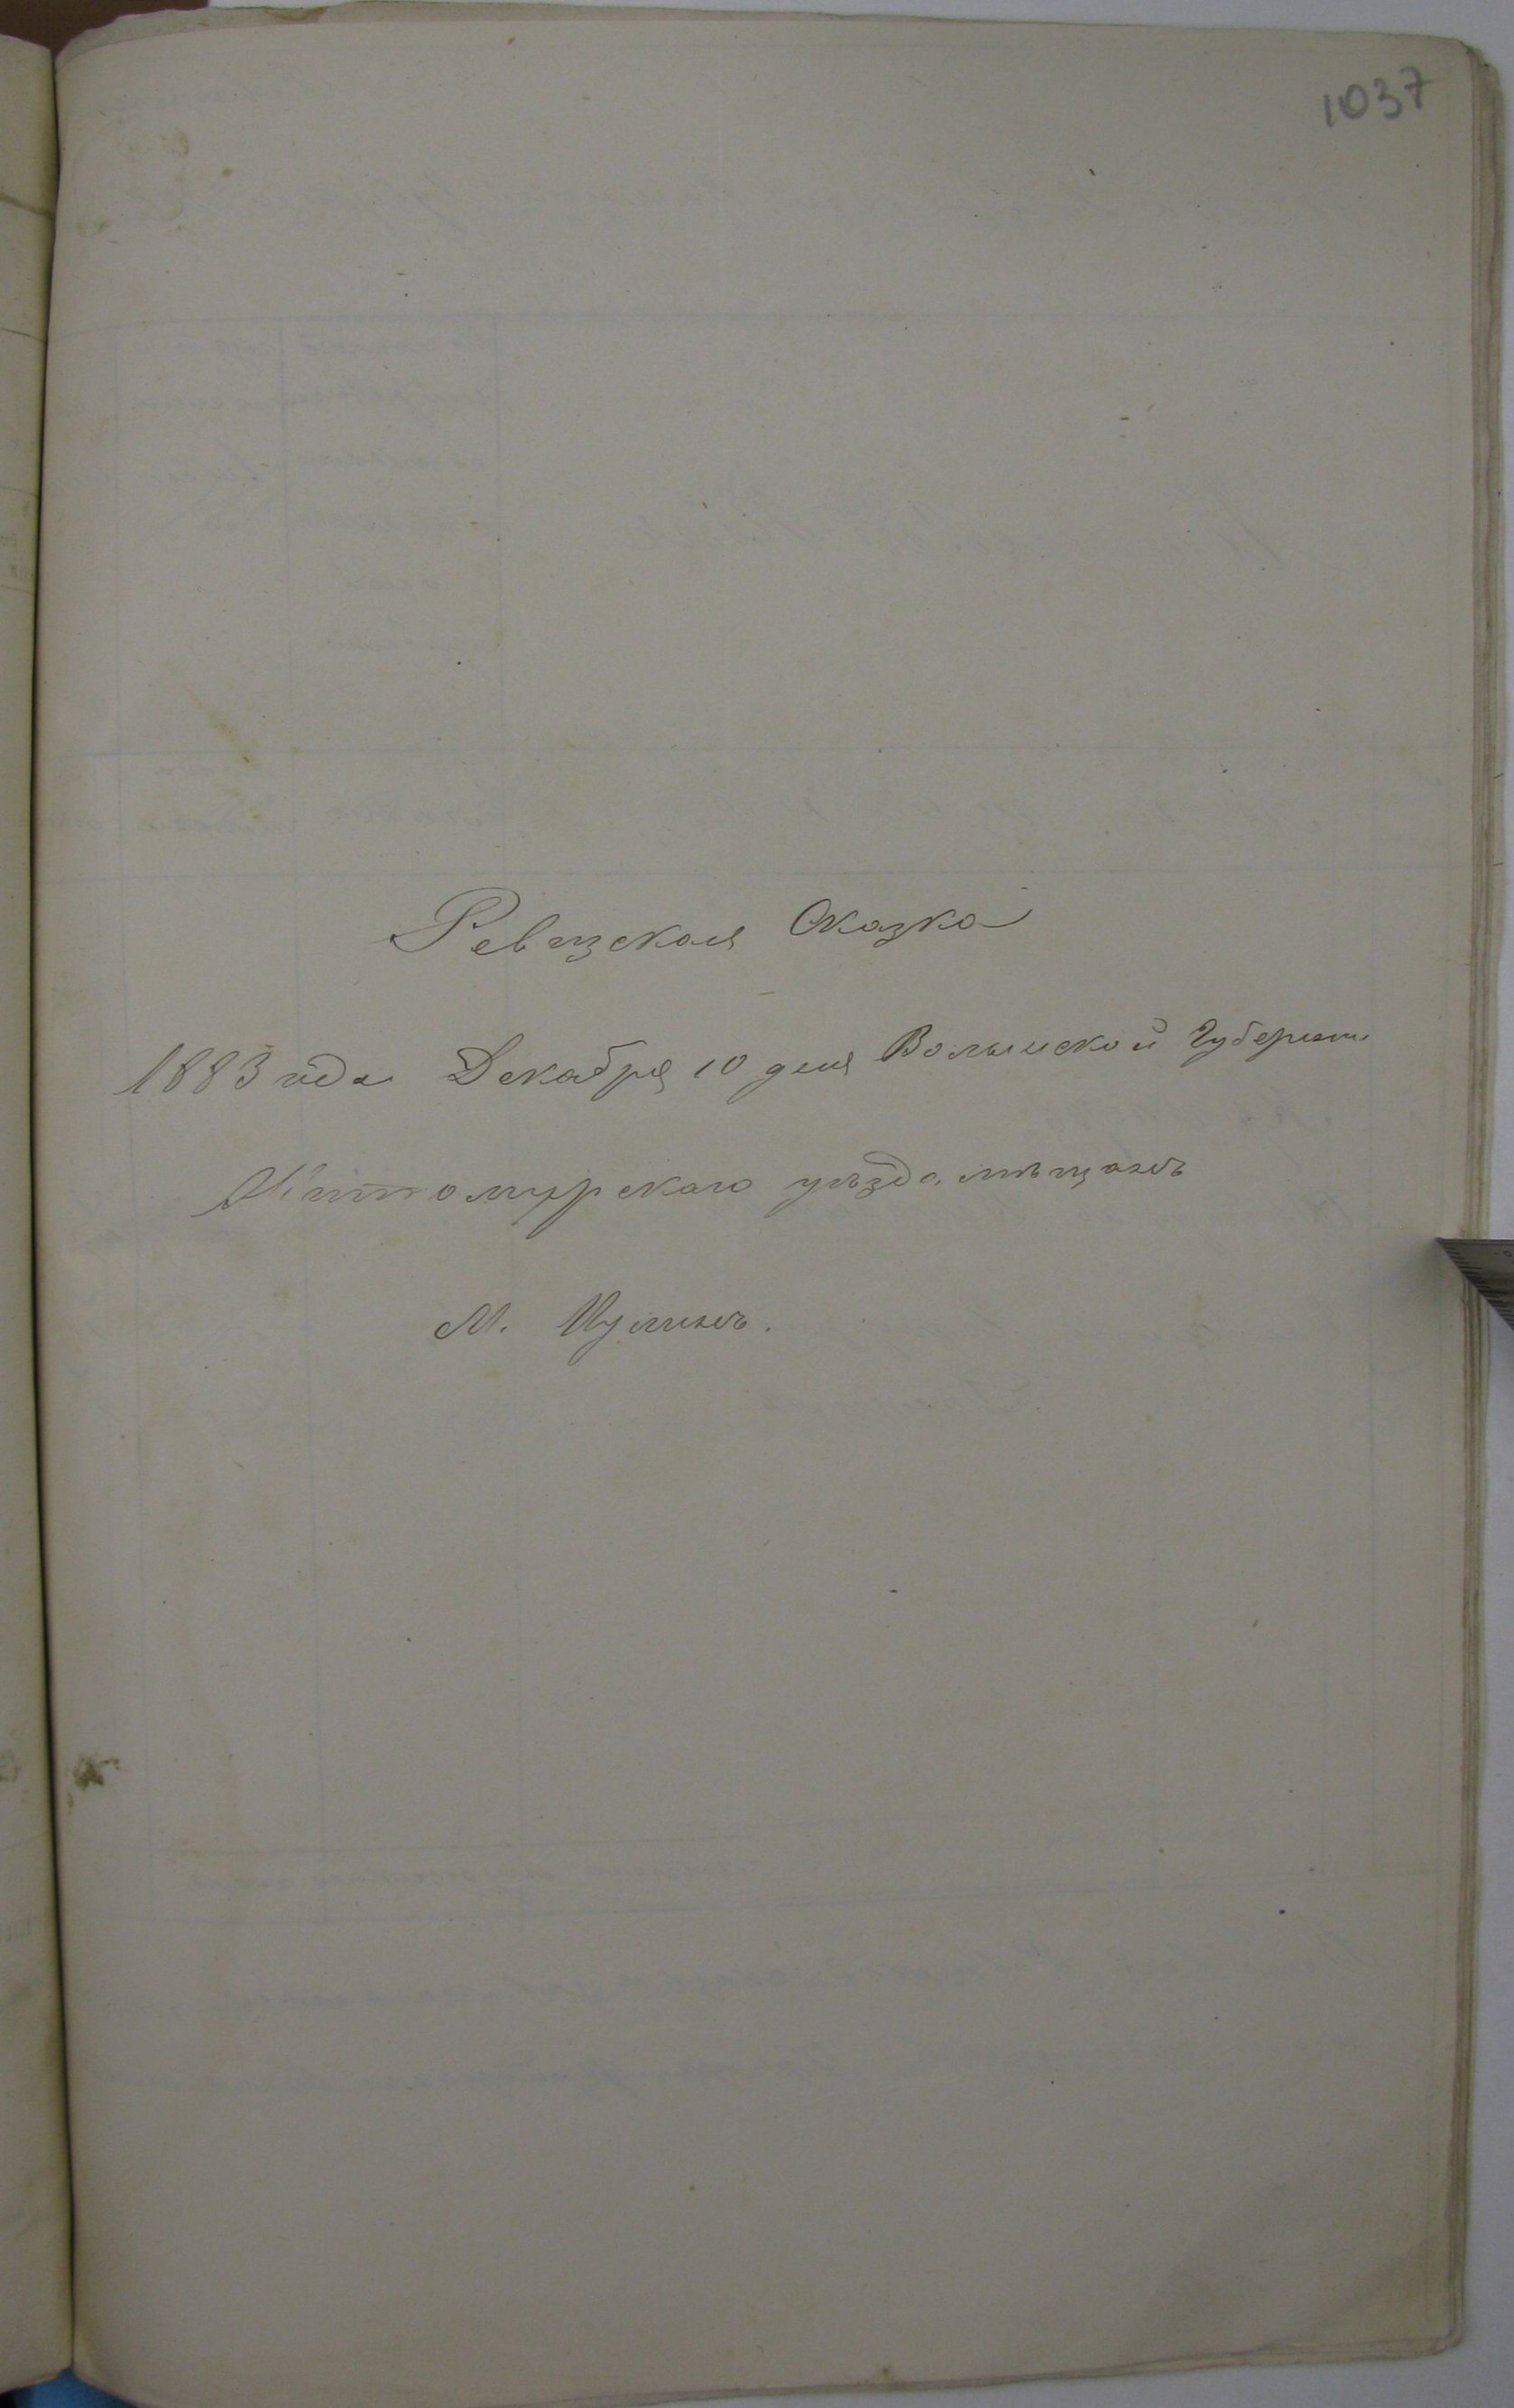 1037
Ревизская Сказка
1883 года Декабря 10 дня Волынской Губернии
Житомирскаго уѣзда мѣщанъ
М. Пулинъ.